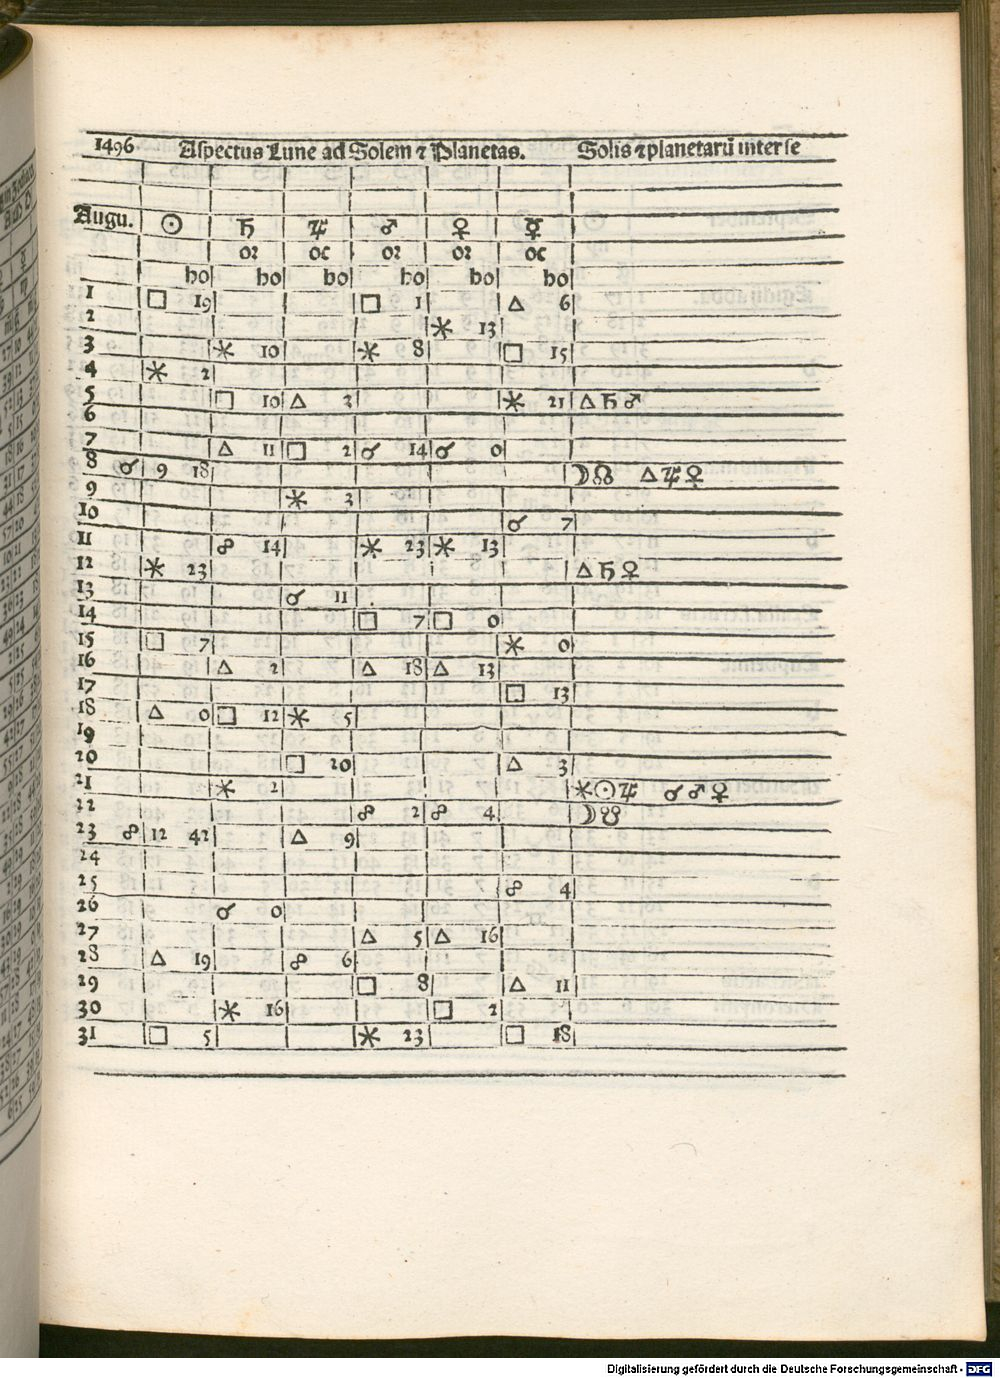 1496 Aspectus Lune ad Solem ⁊ Planetas. Solis ⁊ planetarū inter se
Augu. ☉ ♄ ♃ ♂ ♀ ☿
oꝛ oc oꝛ oꝛ oc
ho ho ho ho ho ho
1 □ 19 □ 1 △ 6
2 ⚹ 13
3 ⚹ 10 ⚹ 8 □ 15
4 ⚹ 2
5 □ 10 △ 2 ⚹ 21 △ ♄ ♂
6
7 △ 11 □ 2 ☌ 14 ☌ 0
8 ☌ 9 18 ☽ ☊ △ ♃ ♀
9 ⚹ 3
10 ☌ 7
11 ☍ 14 ⚹ 23 ⚹ 13
12 ⚹ 23 △ ♄ ♀
13 ☌ 11
14 □ 7 □ 0
15 □ 7 ⚹ 0
16 △ 2 △ 18 △ 13
17 □ 13
18 △ 0 □ 12 ⚹ 5
19
20 □ 20 △ 3
21 ⚹ 2 ⚹ ☉ ♃ ☌ ♂ ♀
22 ☍ 2 ☍ 4 ☽ ☋
23 ☍ 12 42 △ 9
24
25 ☍ 4
26 ☌ 0
27 △ 5 △ 16
28 △ 19 ☍ 6
29 □ 8 △ 11
30 ⚹ 16 □ 2
31 □ 5 ⚹ 23 □ 18
Digitalisierung gefördert durch die Deutsche Forschungsgemeinschaft - DFG